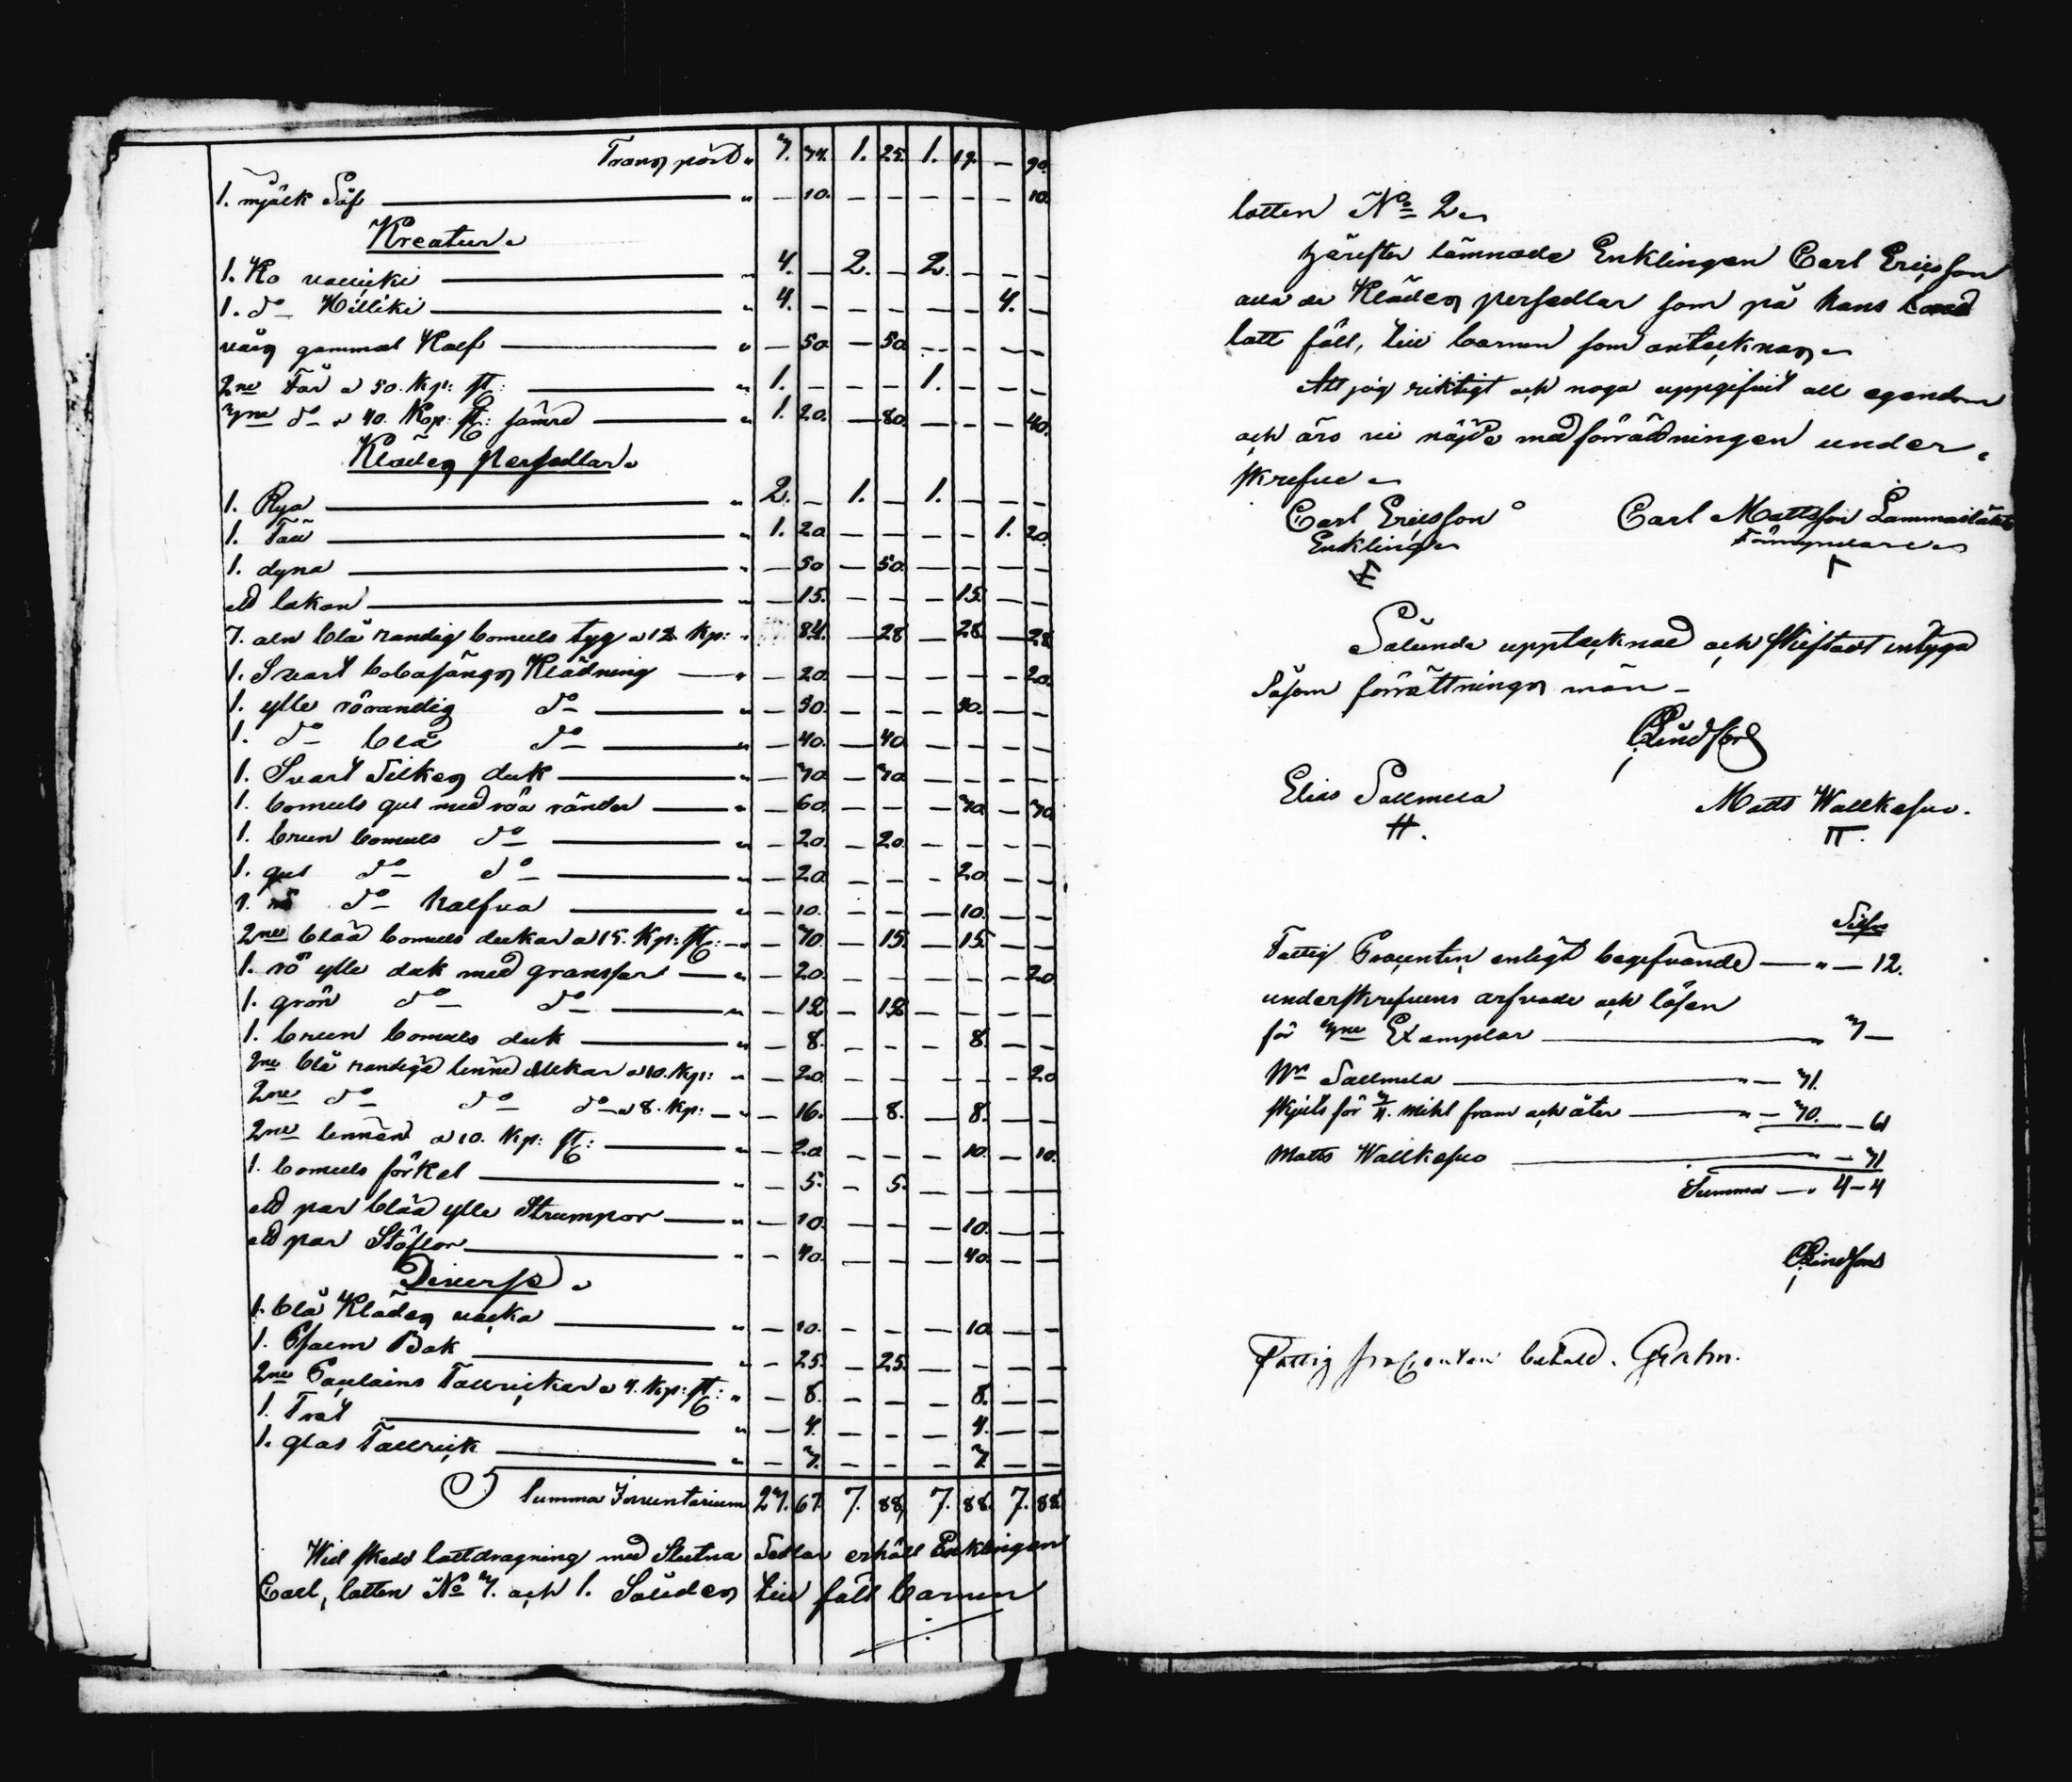 Transport " 3. 74. 1. 25. 1. 19. — 90.
1. mjölk Såf " — 10. — — — — — 10.
Kreatur
1. Ko " 4. — 2. — 2. — — —
1. do Killiki " 4. — — — — — 4. —
gammal Kalf " — 50. — 50. — — — —
2ne Får a 50. Kp: st: " 1. — — — 1. — — —
3ne do a 40. Kop: st: sämre " 1. 20. — 80. — — — 40.
Klädes Persedlar
1. Rya " 2. — 1. — 1. — — —
1. Täll " 1. 20. — — — — 1. 20.
1. dyna " — 50. — 50. — — — —
ett lakan " — 15. — — — 15. — —
7. aln blå randig bomuls tyg a 12 Kp: " 84. — 28 — 28. — 28
1. Svart Klädning " — 20. — — — — — 20.
1. ylle rörandig do " — 30. — — — 30. — —
1. do blå do " — 40. — 40. — — — —
1. Svart Silkes duk " — 70. — 70. — — — —
1. bomuls gul med röa ränder " — 60. — — — 30. — 30
1. brun bomuls do " — 20. — 20. — — — —
1. gul do do " — 20. — — — 20. — —
1. rö do halfva " — 10. — — — 10. — —
2ne blåa bomuls dukar a 15. Kp: st: " — 30. — 15. — 15. — —
1. rö ylle duk med fransar " — 20. — — — — — 20.
1. grön do do " — 12 — 12 — — — —
1. brun bomuls duk " — 8. — — — 8. — —
2ne blå randiga linne dukar a 10. Kp: " — 20. — — — — — 20
2ne do do do a 8. Kp: " — 16. — 8. — 8. — —
2ne linnen a 10. Kp: st: " — 20. — — — 10. — 10.
1. bomuls förkel " — 5. — 5. — — — —
ett par blåa ylle Strumpor " — 10. — — — 10. — —
ett par Stöflor " — 40. — — — 40. — —
Diverse
1. blå Klädes väska " — 10. — — — 10. — —
1. Psalm Bok " — 25. — 25. — — — —
2ne Tallrickar a 4. Kp: st: " — 8. — — — 8. — —
1. Trät " — 4. — — — 4. — —
1. glas Tallrick " — 3. — — — 3. — —
Summa Inventarium 23. 67. 7. 88. 7. 88. 7. 88.
Wid skedd lottdragning med Slutna Sedlar erhöll Enklingen
Carl, lotten No 3. och 1. Således till föll barnen
lotten No 2
härefter lämnade Enklingen Carl Ericsson
alla de Klädes persedlar som på hans
lott föll, till barnen som antecknas
Att jag riktigt och noga uppgifvit all egendom
och äro vi nöjde med förrättningen under,
skrifve
Carl Ericsson Carl Mattsson
Enkling Förmyndare
Sålunda upptecknad och skiftadt intyga
Såsom förrättnings män
Lindfors
Elias Sallmela Matts Wallkesuo.
Silfver
Fattig Procenten enligt begifvande " — 12.
underskrifvens arfvode och lösen
för 3ne Exemplar " 3 —
Nn Sallmela " — 31.
skjuts för mihl fram och åter " — 30. — 61
Matts Wallkesuo " — 31
Summa " 4 — 4
Lindfors
Fattig procenten betald.